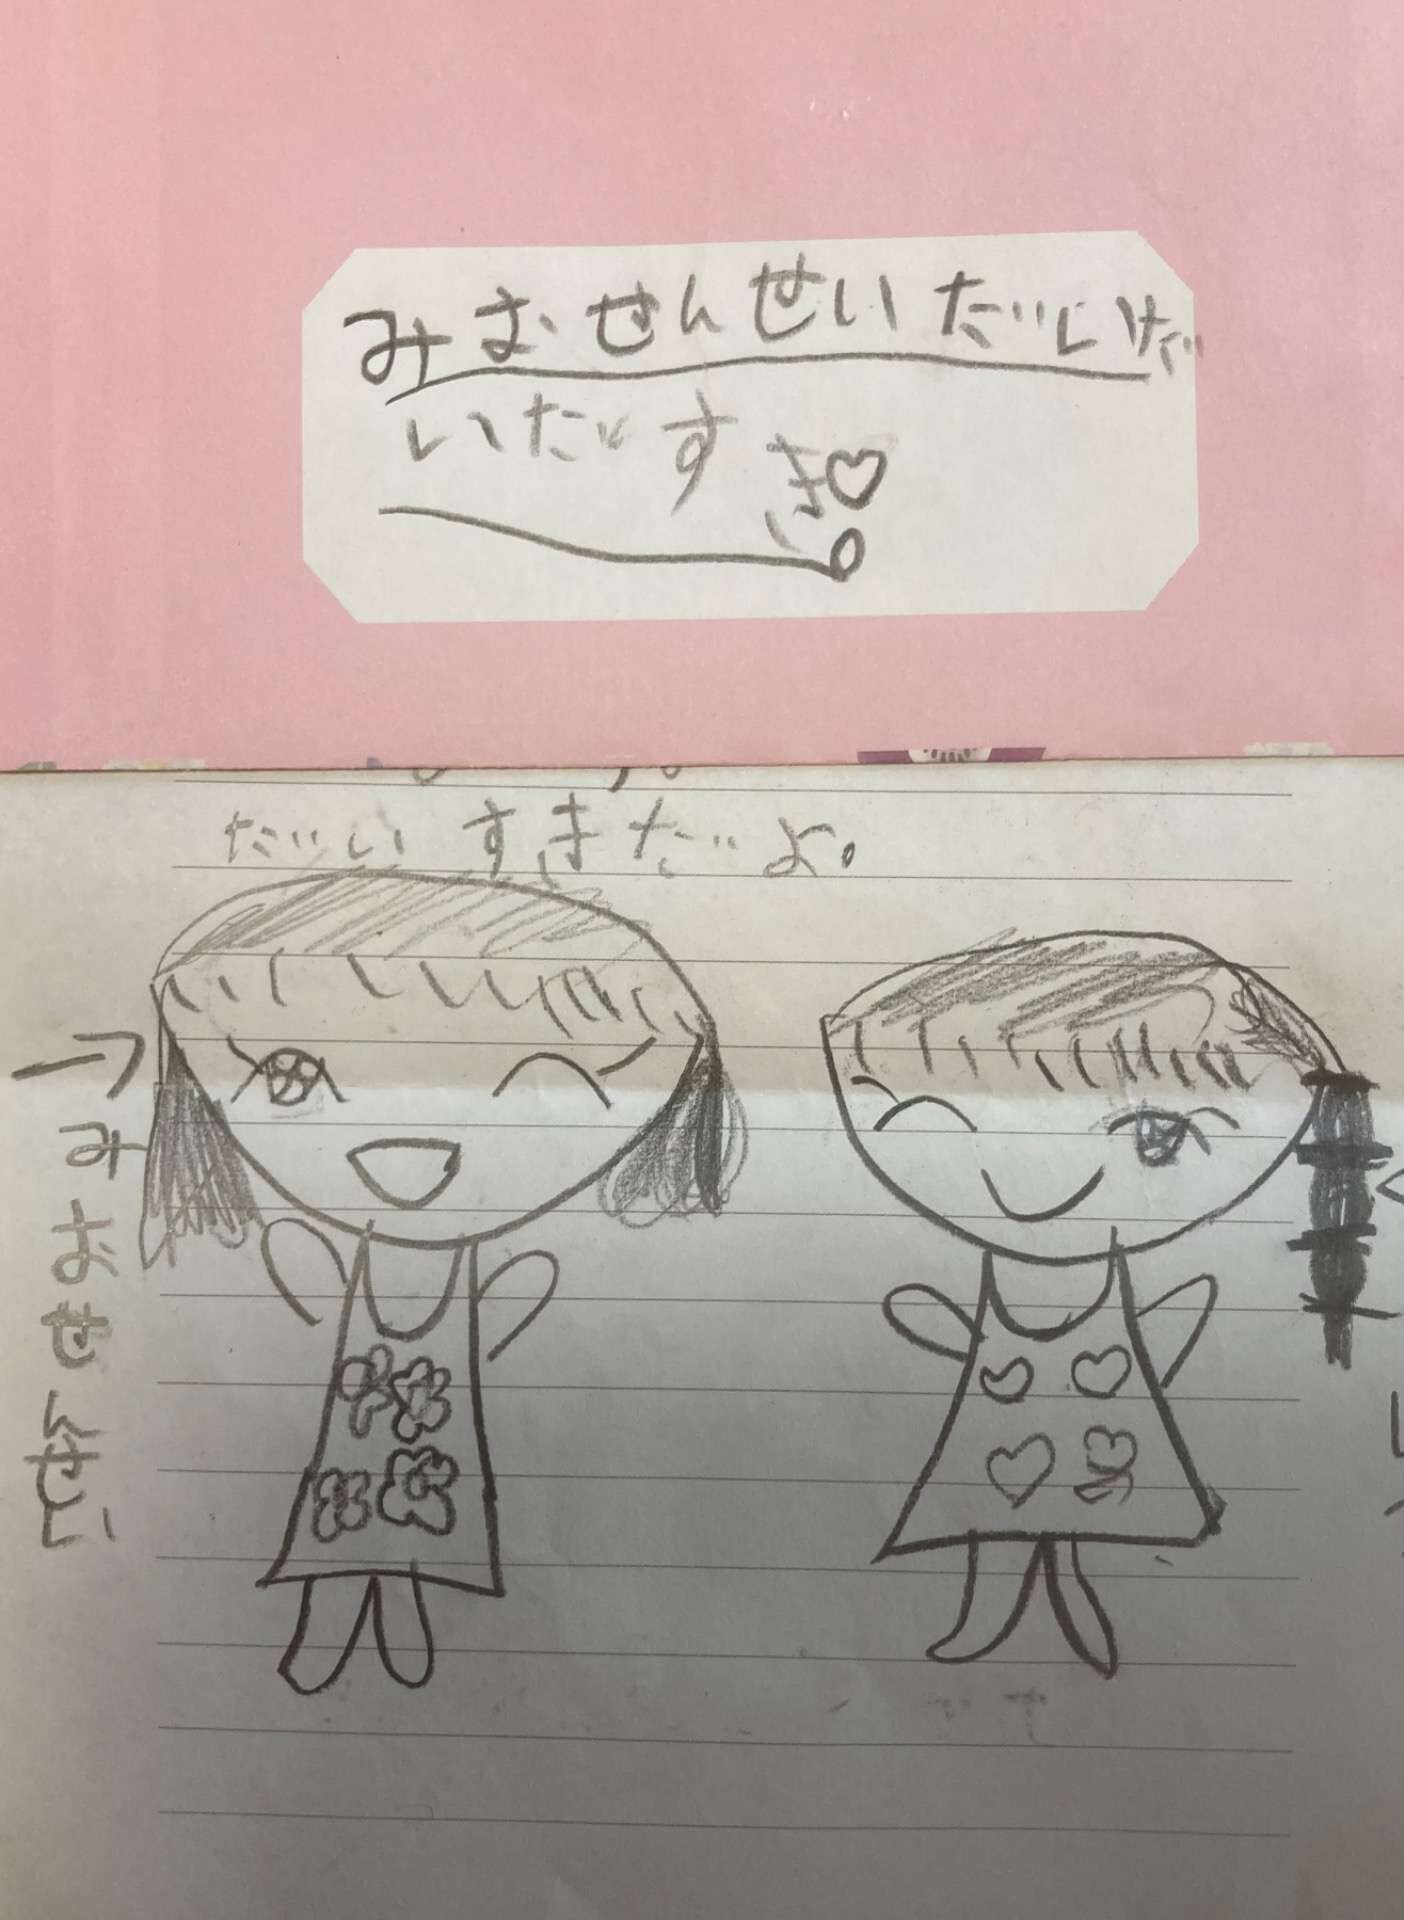 みおせんせいだいだ
いだいすき♡
だいすきだよ。
みおせんせい